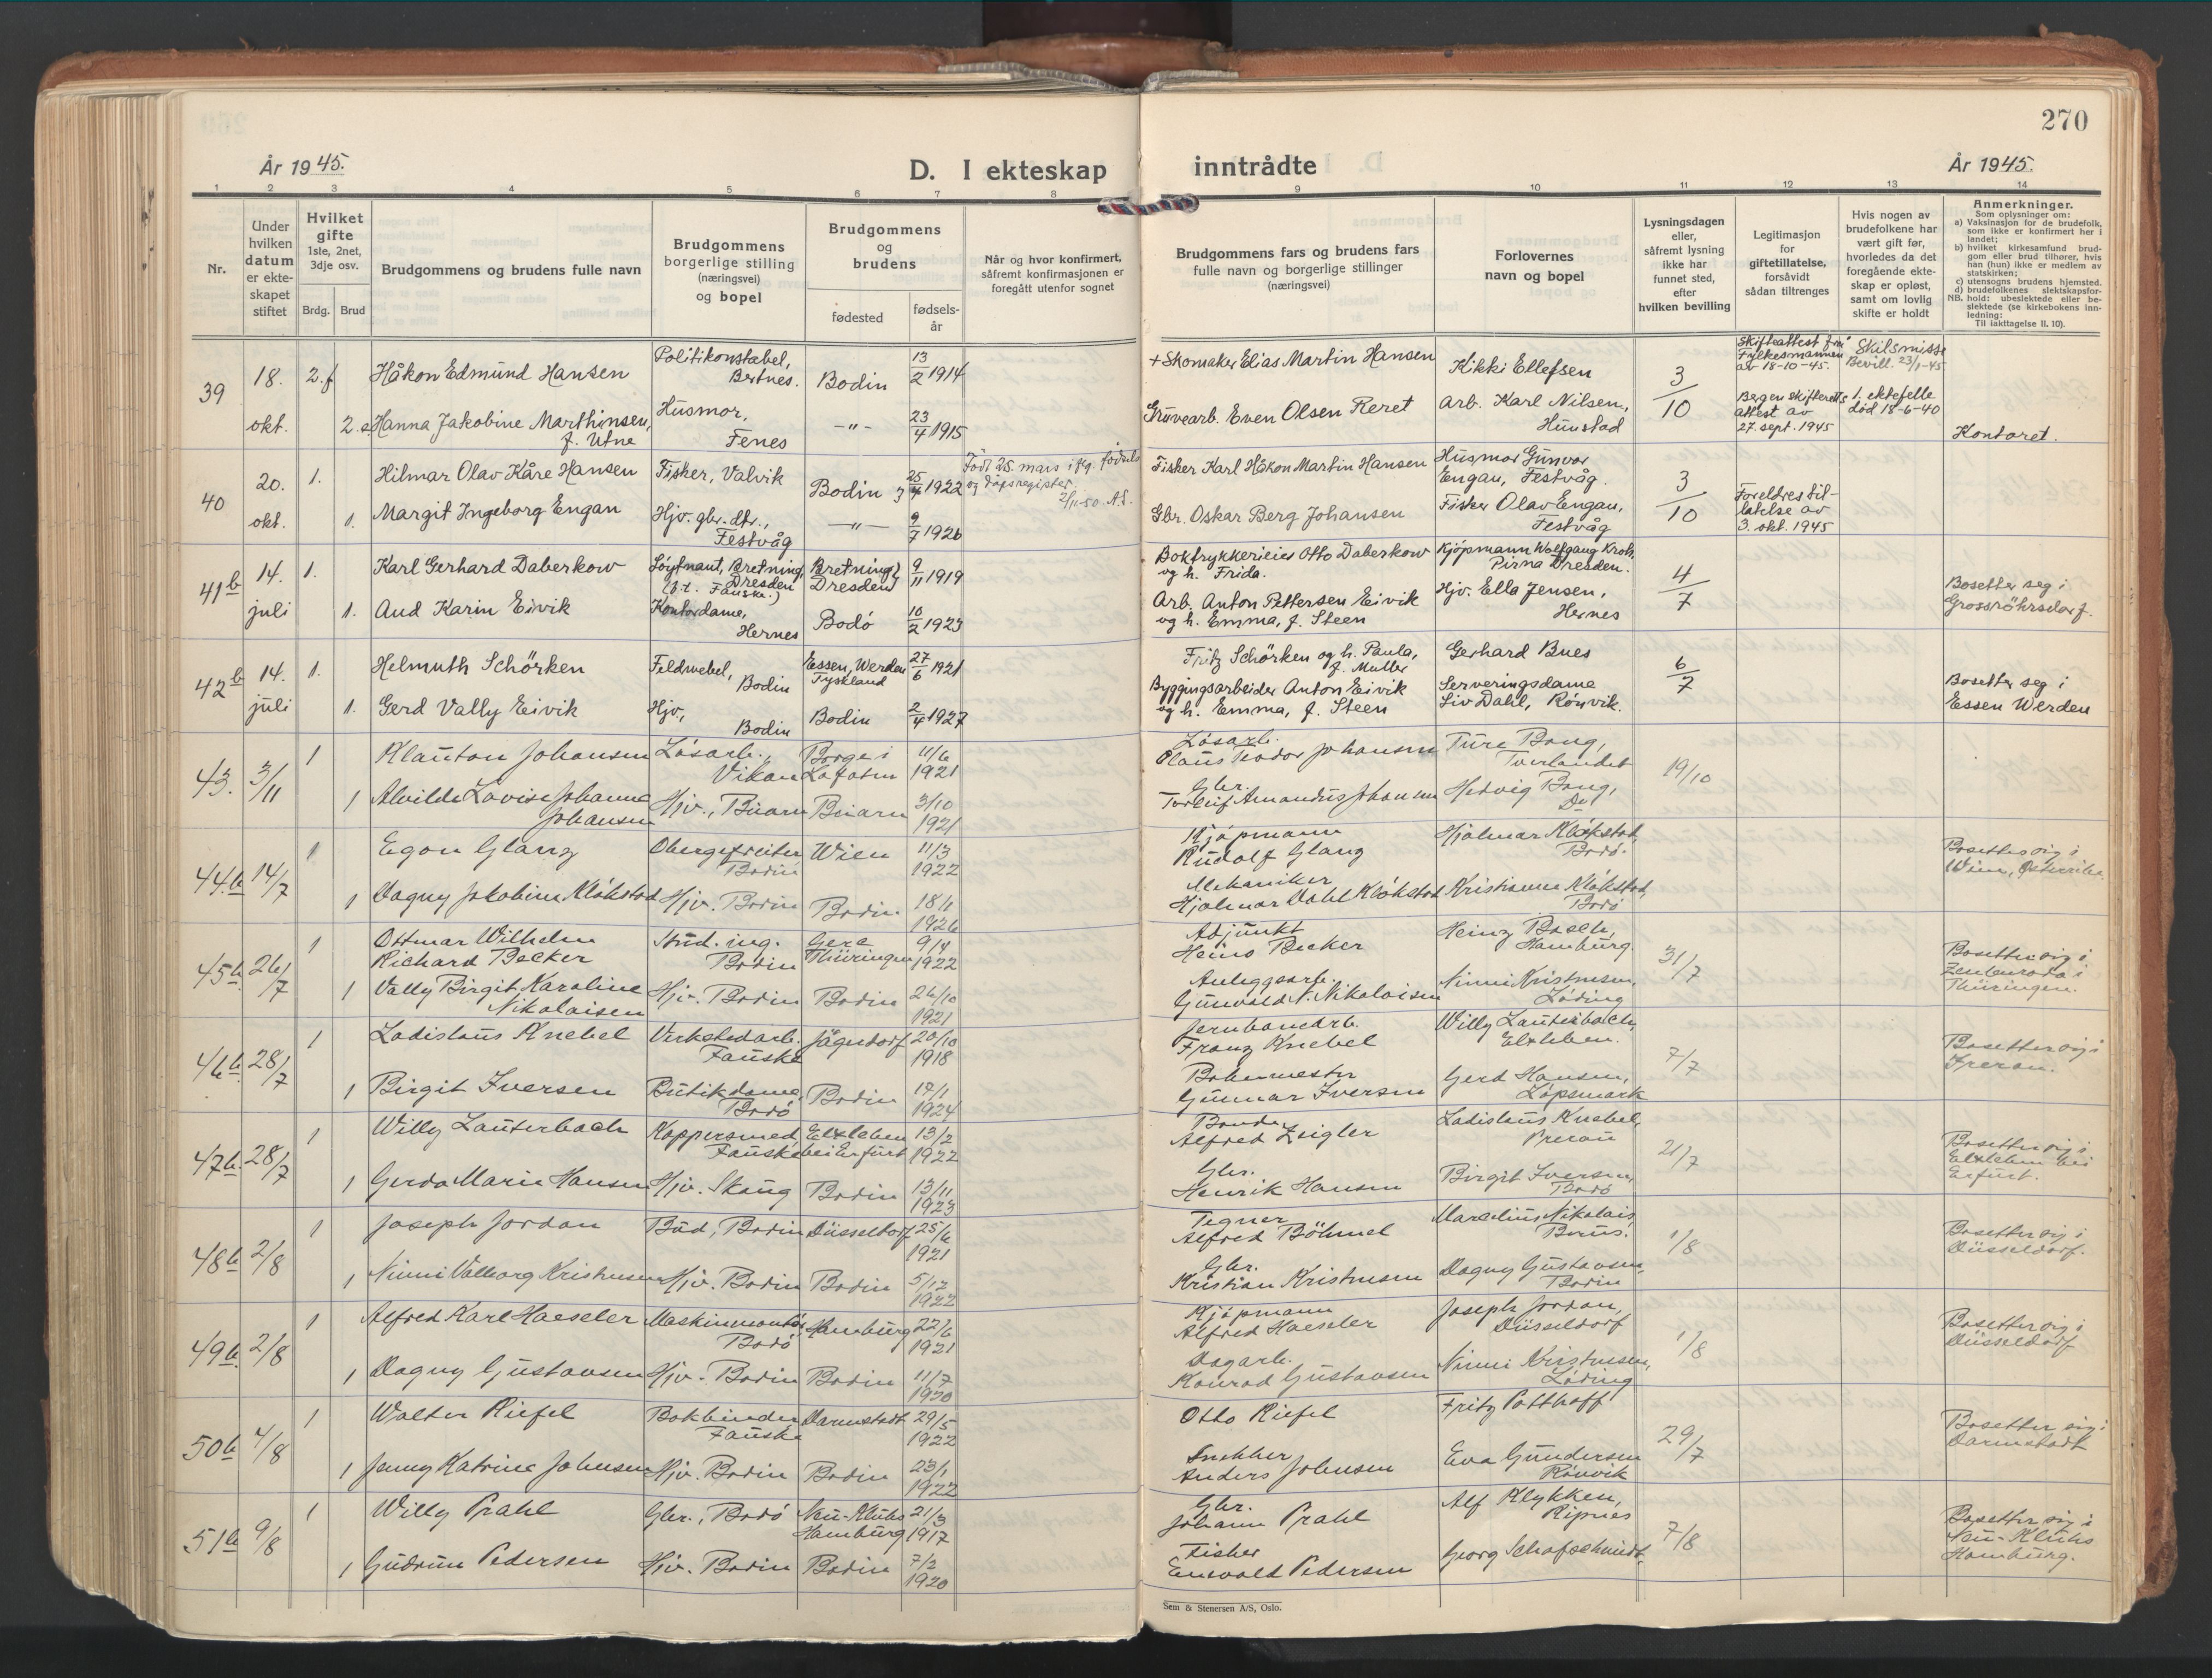 270
År 1945.
D. I ekteskap
inntrådte
År 1945.
1 2 3 4 5 6 7 8 9 10 11 12 13 14
Nr.
Under hvilken datum er ekteskapet stiftet
Hvilket gifte
1ste, 2net, 3dje osv.
Brdg. Brud
Brudgommens og brudens fulle navn
Brudgommens borgerlige stilling (næringsvei) og bopel
Brudgommens og brudens
fødested
fødselsår
Når og hvor konfirmert, såfremt konfirmasjonen er foregått utenfor sognet
Brudgommens fars og brudens fars fulle navn og borgerlige stillinger (næringsvei)
Forlovernes navn og bopel
Lysningsdagen eller, såfremt lysning ikke har funnet sted, efter hvilken bevilling
Legitimasjon for giftetillatelse, forsåvidt sådan tiltrenges
Hvis nogen av brudefolkene har vært gift før, hvorledes da det foregående ekteskap er opløst, samt om lovlig skifte er holdt
Anmerkninger.
Som oplysninger om:
a) Vaksinasjon for de brudefolk, som ikke er konfirmert her i landet;
b) hvilket kirkesamfund brudgom eller brud tilhører, hvis han (hun) ikke er medlem av statskirken;
c) utensogns brudens hjemsted.
d) brudefolkenes slektskapsforhold: ubeslektede eller beslektede (se kirkebokens innledning:
NB.
Til iakttagelse II. 10).
39 18. okt. 2.f Håkon Edmund Hansen Politikonstabel, Bertnes. Bodin 13/2 1914 + Skomaker Elias Martin Hansen Kikki Ellefsen 3/10 Skifteattest frå Fylkesmannen av 18-10-45. Skilsmisse Bevill. 23/1-45
2.e Hanna Jakobine Marthinsen, f. Utne Husmor, Fenes -"- 23/4 1915 Gruvearb. Even Olsen Reret Arb. Karl Nilsen, Hunstad Bergen skifteretts attest av 27. sept. 1945 1. ektefelle død 18-6-40 Kontoret.
40 20. okt. 1. Hilmar Olav Kåre Hansen Fisker, Valvik Bodin 25/4 1922 Født 25. mars i flg. fødsels og dåpsregister. 2/11-50. A.S. Fisker Karl Håkon Martin Hansen Husmor Gunvor Engan, Festvåg. 3/10
1. Margit Ingeborg Engan Hjv. gbr. dtr., Festvåg -"- 9/7 1926 Gbr. Oskar Berg Johansen Fisker Olav Engan, Festvåg Foreldres tillatelse av 3. okt. 1945
41b 14. juli 1. Karl Gerhard Daberkow Løytnant, Bretning, Dresden (p.t. Fauske.) Bretning, Dresden 9/11 1919 Boktrykkerieier Otto Daberkow og h. Frida. Kjøpmann Wolfgang Kroh, Pirna Dresden. 4/7
1. Aud Karin Eivik Kontordame, Hernes Bodø 10/2 1923 Arb. Anton Pettersen Eivik og h. Emma, f. Steen Hjv. Ella Jensen, Hernes Bosetter seg i Grossröhrsdorf.
42b 14. juli 1. Helmuth Schörken Feldwebel, Bodin Essen, Werden Tyskland 27/6 1921 Fritz Schörken og h. Paula, f. Muller Gerhard Bues 6/7
1. Gerd Vally Eivik Hjv., Bodin Bodin 2/4 1927 Byggingsarbeider Anton Eivik og h. Emma, f. Steen Serveringsdame Liv Dahl, Rønvik. Bosetter seg i Essen Werden
43. 3/11 1 Klauton Johansen Løsarb., Vikan Borge i Lofoten 11/6 1921 Løsarb. Olaus Teodor Johansen Ture Bong, Tverlandet 19/10
1 Alvilde Lovise Johanne Johansen Hjv., Beiarn Beiarn 3/10 1921 Gbr. Torleif Amandus Johansen Hedvig Bong, Do
44b 14/7 1 Egon Glanz Obergefreiter Bodin Wien 11/3 1922 Kjøpmann Rudolf Glanz Hjalmar Kløkstad, Bodø. Bosetter sig i Wien,
1 Dagny Jakobine Kløkstad Hjv. Bodin Bodin 18/1 1926 Mekaniker Hjalmar Dahl Kløkstad Kristianne Kløkstad, Bodø
45b 26/7 1 Ottmar Wilhelm Richard Becker Stud. ing. Bodin Gera Thüringen 9/4 1922 Adjunkt Heino Becker Heinz Basch, Hamburg. 31/7 Bosetter sig i Zeulenroda i Thüringen.
1 Vally Birgit Karoline Nikolaisen Hjv. Bodin Bodin 26/10 1921 Anleggsarb. Gunvald N. Nikolaisen Ninni Kristensen, Løding
46b 28/7 1 Ladislaus Knebel Verkstedarb. Fauske Jägerdorf 20/10 1918 Jernbanearb. Franz Knebel Willy Lauterbach, Elxleben. 7/7 Bosetter sig i
1 Birgit Iversen Butikdame, Bodø Bodin 17/1 1924 Bakermester Gunnar Iversen Gerd Hansen, Løpsmark
47b 28/7 1 Willy Lauterbach Koppersmed, Fauske Elxleben bei Erfurt 13/2 1922 Bonde Alfred Zeigler Ladislaus Knebel, 21/7 Bosetter sig i Elxleben bei Erfurt.
1 Gerda Marie Hansen Hjv. Skaug Bodin 13/11 1923 Gbr. Henrik Hansen Birgit Iversen, Bodø
48b 2/8 1 Joseph Jordan Bud, Bodin Düsseldorf 25/6 1921 Tegner Alfred Böhmel Marcelius Nikolais 1/8 Bosetter sig i Düsseldorf.
1 Ninni Valborg Kristensen Hjv. Bodin Bodin 5/12 1922 Gbr. Kristian Kristensen Dagny Gustavsen, Bodin
49b. 2/8 1 Alfred Karl Haeseler Maskinmontør Bodø Hamburg 22/6 1921 Kjøpmann Alfred Haeseler Joseph Jordan, Düsseldorf 1/8 Bosetter sig i Düsseldorf
1 Dagny Gustavsen Hjv. Bodin Bodin 11/7 1920 Dagarb. Konrad Gustavsen Ninni Kristensen, Løding
50b 4/8 1 Walter Riefel Bokbinder Fauske Darmstadt 29/5 1922 Otto Riefel Fritz Potthoff 29/7 Bosetter sig i Darmstadt
1 Jenny Katrine Johnsen Hjv. Bodin Bodin 23/1 1922 Snekker Anders Johnsen Eva Gundersen Rønvik
51b 9/8 1 Willy Prahl Gbr., Bodø Neu-Kluhs Hamburg 21/3 1917 Gbr. Johann Prahl Alf Klykken, Ripnes 7/8 Bosetter sig i Neu-Kluhs Hamburg.
1 Gudrun Pedersen Hjv. Bodin Bodin 7/2 1920 Fisker Enevold Pedersen Georg Schafschmidt
Sem & Stenersen A/S, Oslo.